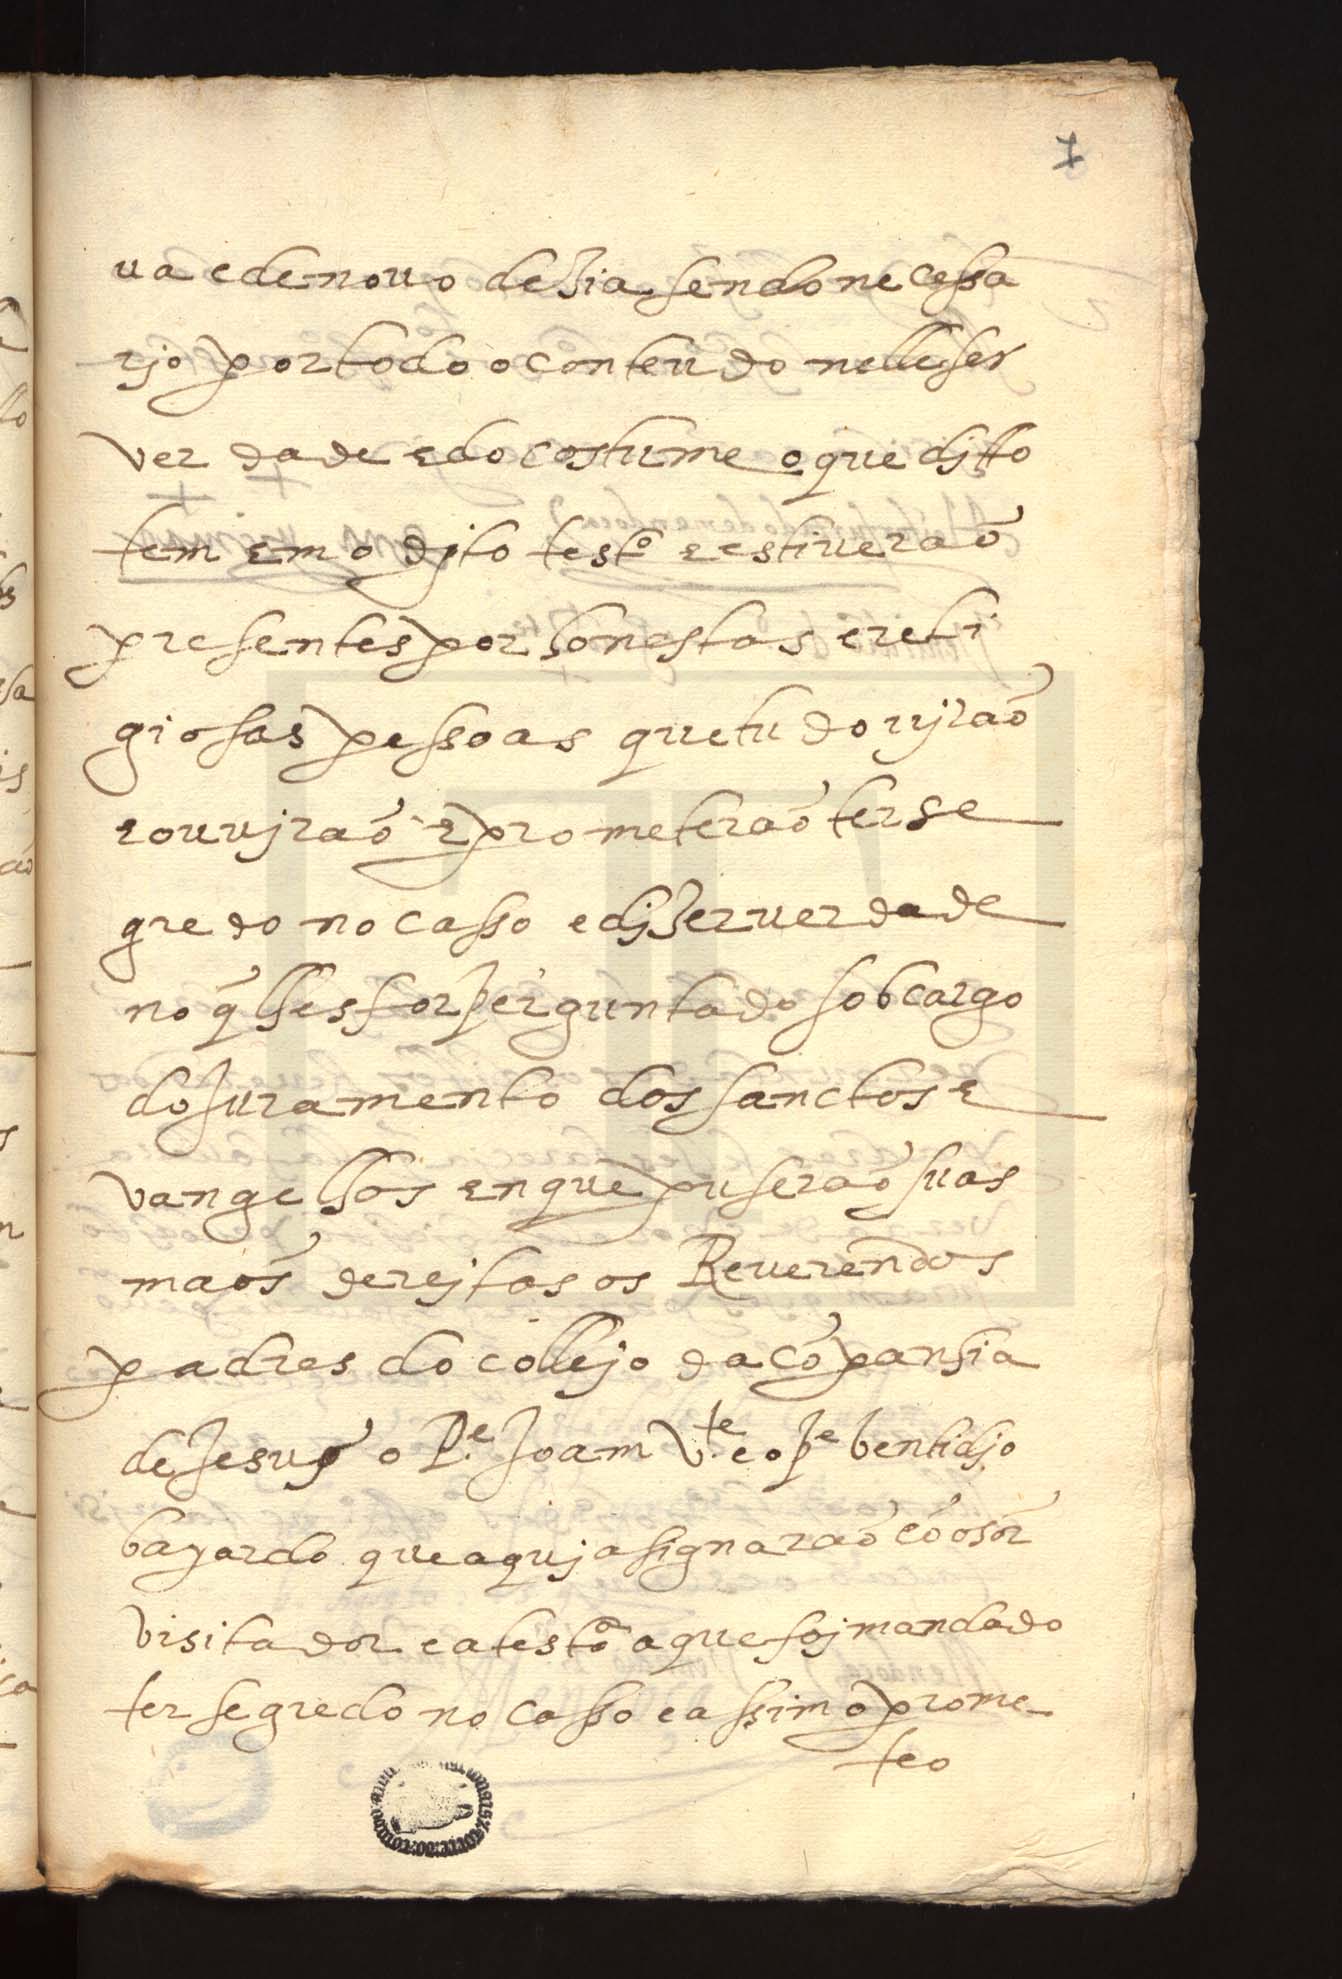 7
ua e de nouo dezia sendo necessa
rjo por todo o conteudo nelle ser
verdade e do costume o que ditto
tem em o djto testo e estiuerão
presentes por honestas e reli
giosas pessoas que tudo ujrão
e ouujrão e prometerão ter se
gredo no casso e djzer uerdade
no q̃ lhes for perguntado sob cargo
do Juramento dos sanctos e
vangelhos en que puserão suas
maõs derejtas os Reuerendos
padres do collejo da cõpanhia
de Jesus o P.e Joam V.te e o P.e bentidjo
bayardo que aquj asignarão cõ o sõr
visitador e a testo a que foj mandado
ter segredo no casso e assim o prome
teo